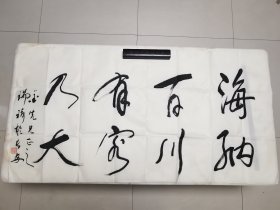 海纳
百川
有容
乃大
先生正之